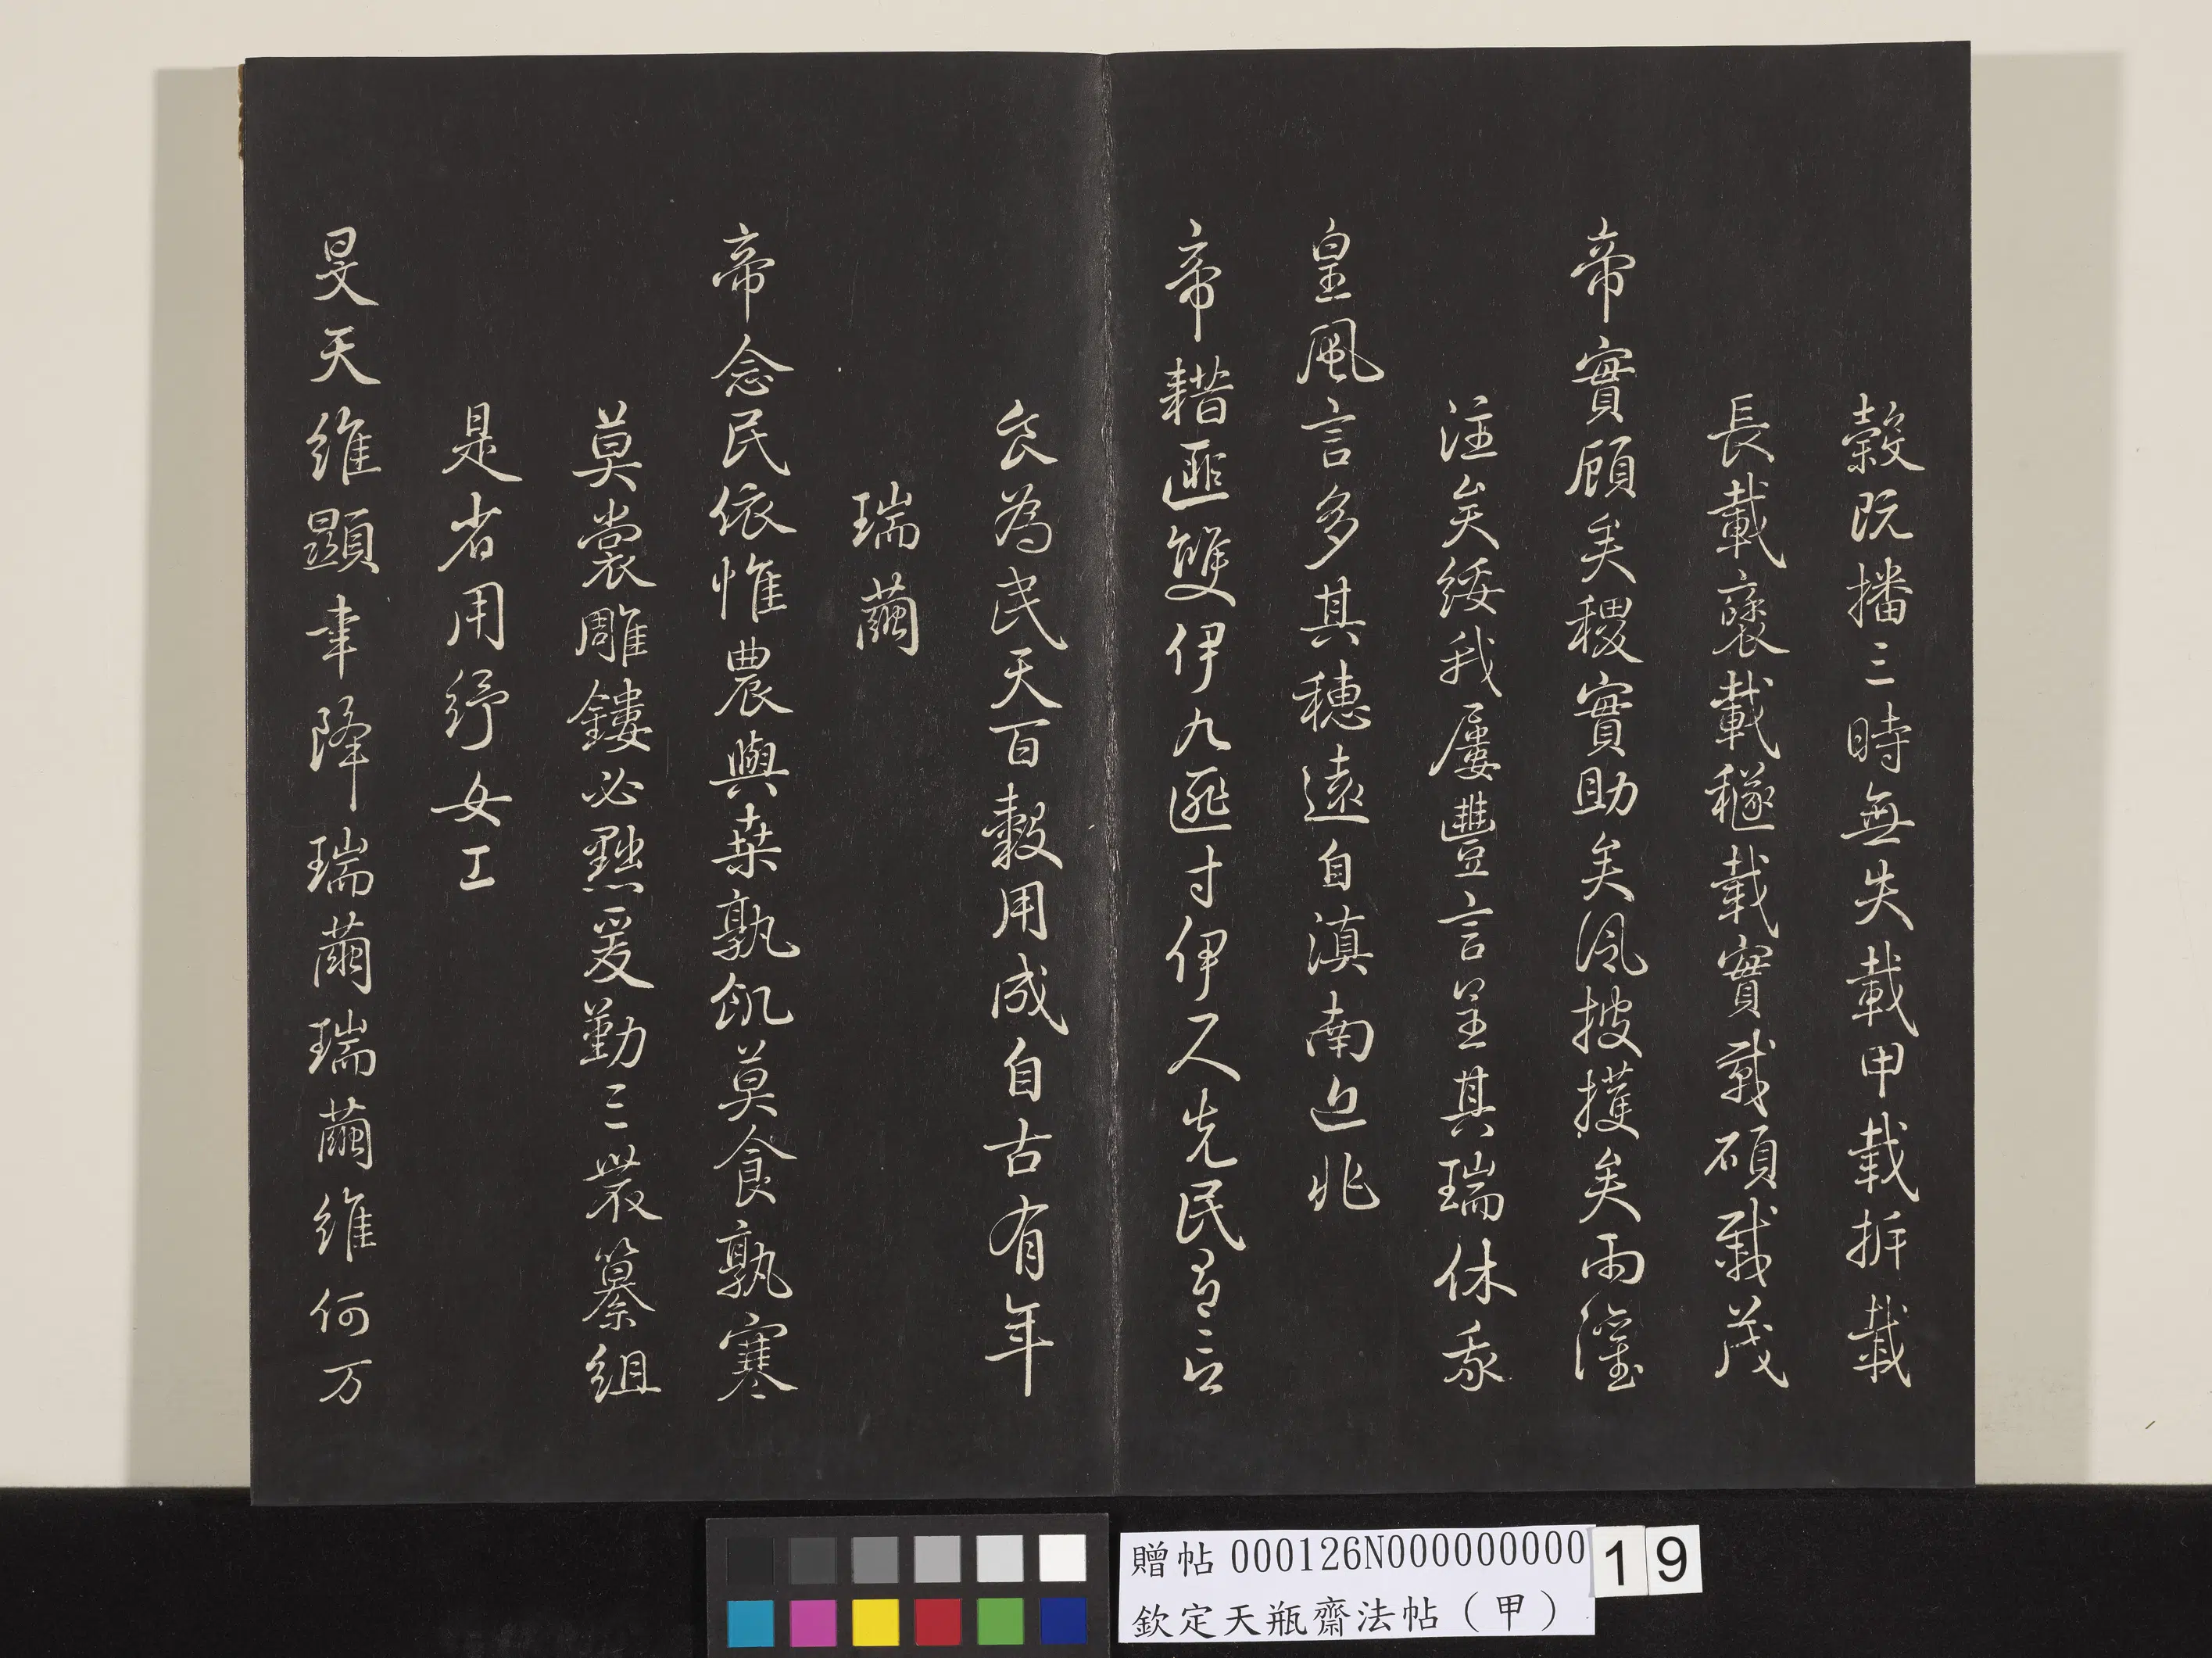 穀既播三時無失載甲載拆載
長載襃載穟載實載碩載茂
帝實顧矣稷實助矣風披擭矣雨
注矣綏我屢豐言呈其瑞休哉
皇風言多其穗遠自滇南迄兆
帝耤匪雙伊九匪寸伊尺先民有言
食為民天百穀用成自古有年
瑞繭
帝念民依惟農與桒孰飢莫食孰寒
莫裳雕鏤必黜爰勤三農纂組
是省用紓女工
旻天維顯聿降瑞繭瑞繭維何万
贈帖 000126N000000000 19
欽定天瓶齋法帖（甲）